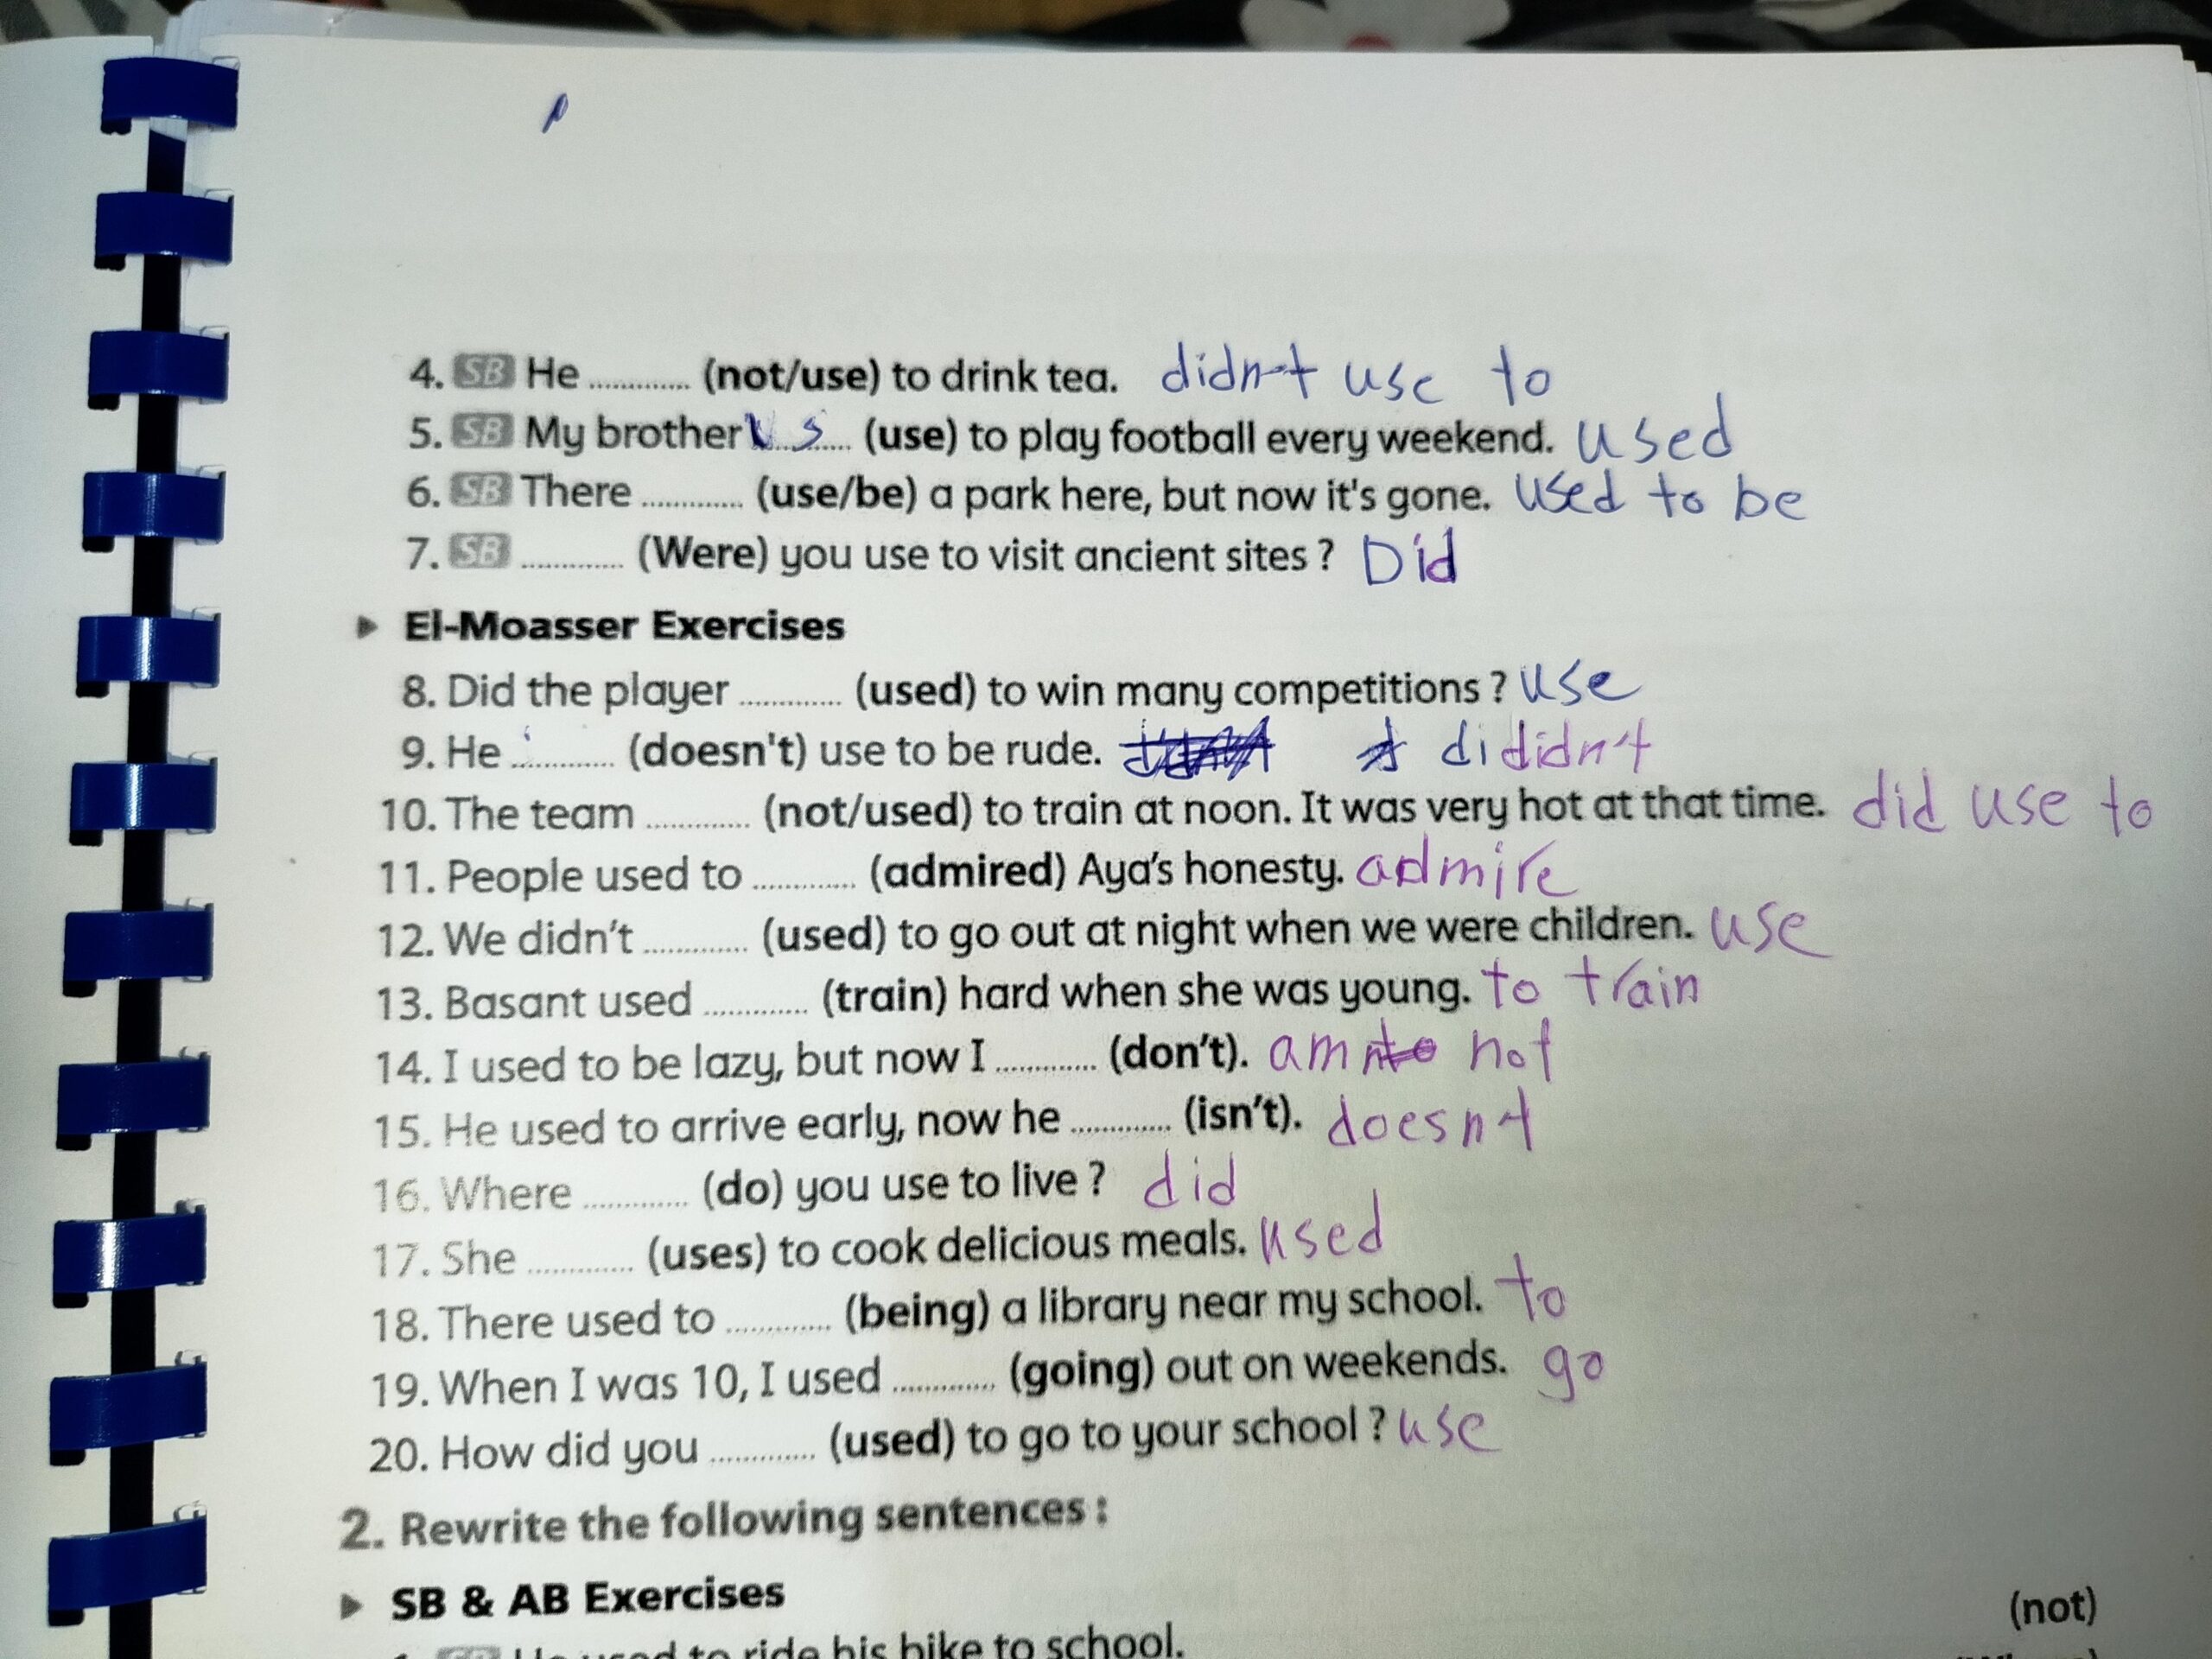 4. SB He ............ (not/use) to drink tea. didn't use to
5. SB My brother us ...... (use) to play football every weekend. used
6. SB There ............ (use/be) a park here, but now it's gone. used to be
7. SB ............ (Were) you use to visit ancient sites ? Did
▶ El-Moasser Exercises
8. Did the player ............ (used) to win many competitions ? use
9. He ............ (doesn't) use to be rude. di didn't
10. The team ............ (not/used) to train at noon. It was very hot at that time. did use to
11. People used to ............ (admired) Aya's honesty. admire
12. We didn't ............ (used) to go out at night when we were children. use
13. Basant used ............ (train) hard when she was young. to train
14. I used to be lazy, but now I ............ (don't). am not
15. He used to arrive early, now he ............ (isn't). doesn't
16. Where ............ (do) you use to live ? did
17. She ............ (uses) to cook delicious meals. used
18. There used to ............ (being) a library near my school. to
19. When I was 10, I used ............ (going) out on weekends. go
20. How did you ............ (used) to go to your school ? use
2. Rewrite the following sentences :
▶ SB & AB Exercises
(not)
1. SB He used to ride his bike to school.